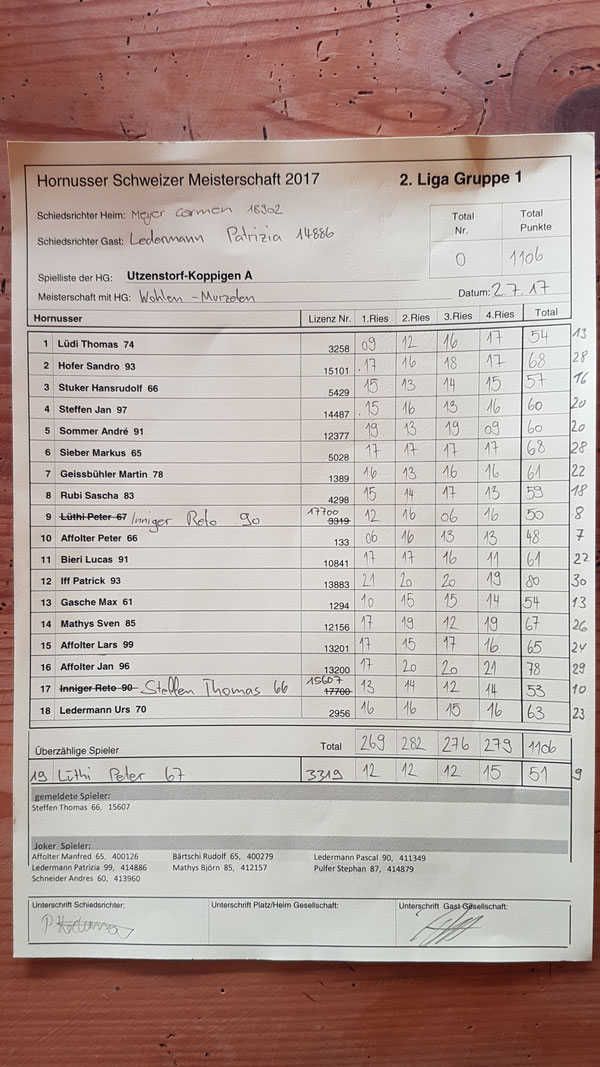 Hornusser Schweizer Meisterschaft 2017 2. Liga Gruppe 1
Schiedsrichter Heim: Meyer Carmen 18902
Schiedsrichter Gast: Ledermann Patrizia 14886
Total Nr. Total Punkte
0 1106
Spielliste der HG: Utzenstorf-Koppigen A
Meisterschaft mit HG: Wohlen - Murzelen Datum: 2.7.17
Hornusser Lizenz Nr. 1.Ries 2.Ries 3.Ries 4.Ries Total
1 Lüdi Thomas 74 3258 09 12 16 17 54 13
2 Hofer Sandro 93 15101 17 16 18 17 68 28
3 Stuker Hansrudolf 66 5429 15 13 14 15 57 16
4 Steffen Jan 97 14487 15 16 13 16 60 20
5 Sommer André 91 12377 19 13 19 09 60 20
6 Sieber Markus 65 5028 17 17 17 17 68 28
7 Geissbühler Martin 78 1389 16 13 16 16 61 22
8 Rubi Sascha 83 4298 15 14 17 13 59 18
9 Lüthi Peter 67 Inniger Reto 90 17700 3319 12 16 06 16 50 8
10 Affolter Peter 66 133 06 16 13 13 48 7
11 Bieri Lucas 91 10841 17 17 16 11 61 22
12 Iff Patrick 93 13883 21 20 20 19 80 30
13 Gasche Max 61 1294 10 15 15 14 54 13
14 Mathys Sven 85 12156 17 19 12 19 67 26
15 Affolter Lars 99 13201 17 15 17 16 65 24
16 Affolter Jan 96 13200 17 20 20 21 78 29
17 Inniger Reto 90 Steffen Thomas 66 15607 17700 13 14 12 14 53 10
18 Ledermann Urs 70 2956 16 16 15 16 63 23
Überzählige Spieler Total 269 282 276 279 1106
19 Lüthi Peter 67 3319 12 12 12 15 51 9
gemeldete Spieler:
Steffen Thomas 66, 15607
Joker Spieler:
Affolter Manfred 65, 400126 Bärtschi Rudolf 65, 400279 Ledermann Pascal 90, 411349
Ledermann Patrizia 99, 414886 Mathys Björn 85, 412157 Pulfer Stephan 87, 414879
Schneider Andres 60, 413960
Unterschrift Schiedsrichter: Unterschrift Platz/Heim Gesellschaft: Unterschrift Gast-Gesellschaft: